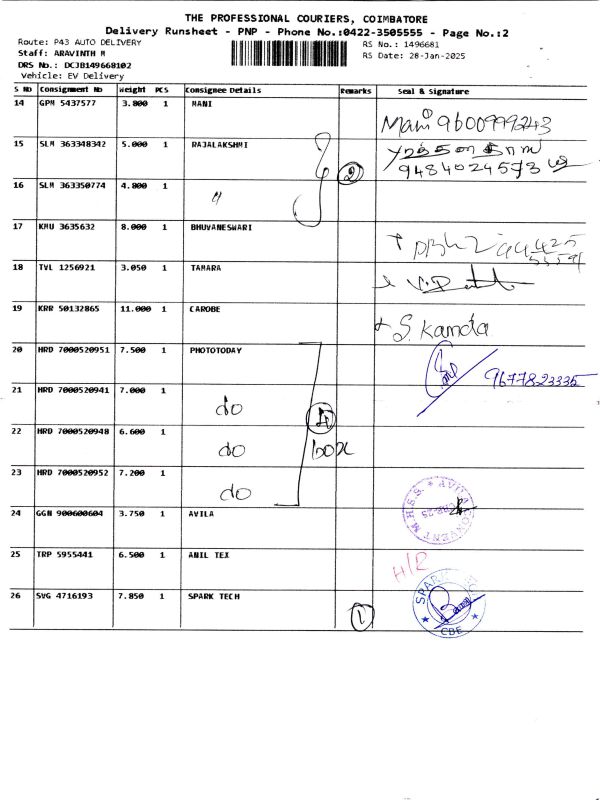 THE PROFESSIONAL COURIERS, COIMBATORE
Delivery Runsheet - PNP - Phone No.:0422-3505555 - Page No.:2
Route: P43 AUTO DELIVERY RS No.: 1496681
Staff: ARAVINTH M RS Date: 28-Jan-2025
DRS No.: DCJB149668102
Vehicle: EV Delivery
S No Consignment No Weight PCS Consignee Details Remarks Seal & Signature
14 GPM 5437577 3.800 1 MANI Mani 9600999243
15 SLM 363348342 5.000 1 RAJALAKSHMI 2 9484024573
16 SLM 363350774 4.800 1 "
17 KMU 3635632 8.000 1 BHUVANESWARI
18 TVL 1256921 3.050 1 TAMARA
19 KRR 50132865 11.000 1 CAROBE S. Kamda
20 HRD 7000520951 7.500 1 PHOTOTODAY 9677823335
21 HRD 7000520941 7.000 1 do 4
22 HRD 7000520948 6.600 1 do box
23 HRD 7000520952 7.200 1 do
24 GGN 900600604 3.750 1 AVILA AVILA CONVENT M.H.S.S.
25 TRP 5955441 6.500 1 ANIL TEX H/R
26 SVG 4716193 7.850 1 SPARK TECH 1 SPARK CBE